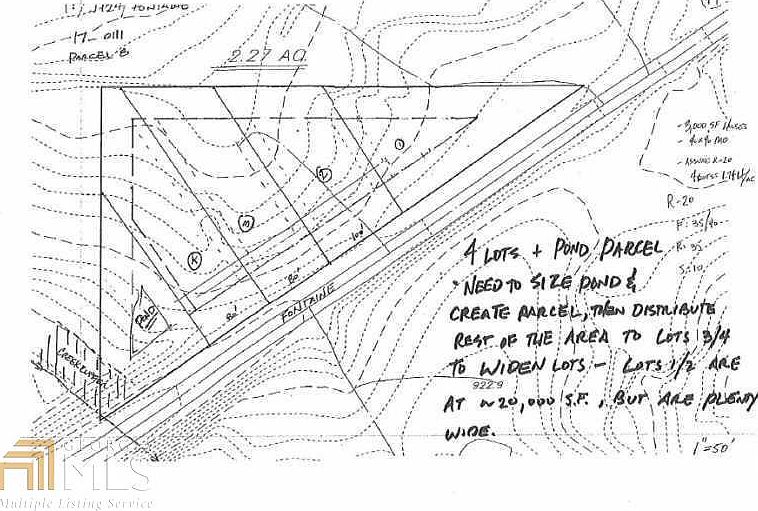 17_0111
PARCEL B
2.27 AC
- 3,000 SF HOUSES
- ASSUME R-20
R-20
F: 35/40
R: 35
S: 10
1
2
3
4
100'
80'
80'
POND
FONTAINE
4 LOTS + POND PARCEL
• NEED TO SIZE POND &
CREATE PARCEL, THEN DISTRIBUTE
REST OF THE AREA TO LOTS 3/4
TO WIDEN LOTS – LOTS 1/2 ARE
922.9
AT ~20,000 S.F., BUT ARE PLENTY
WIDE.
1"=50'
GEORGIA
MLS
Multiple Listing Service